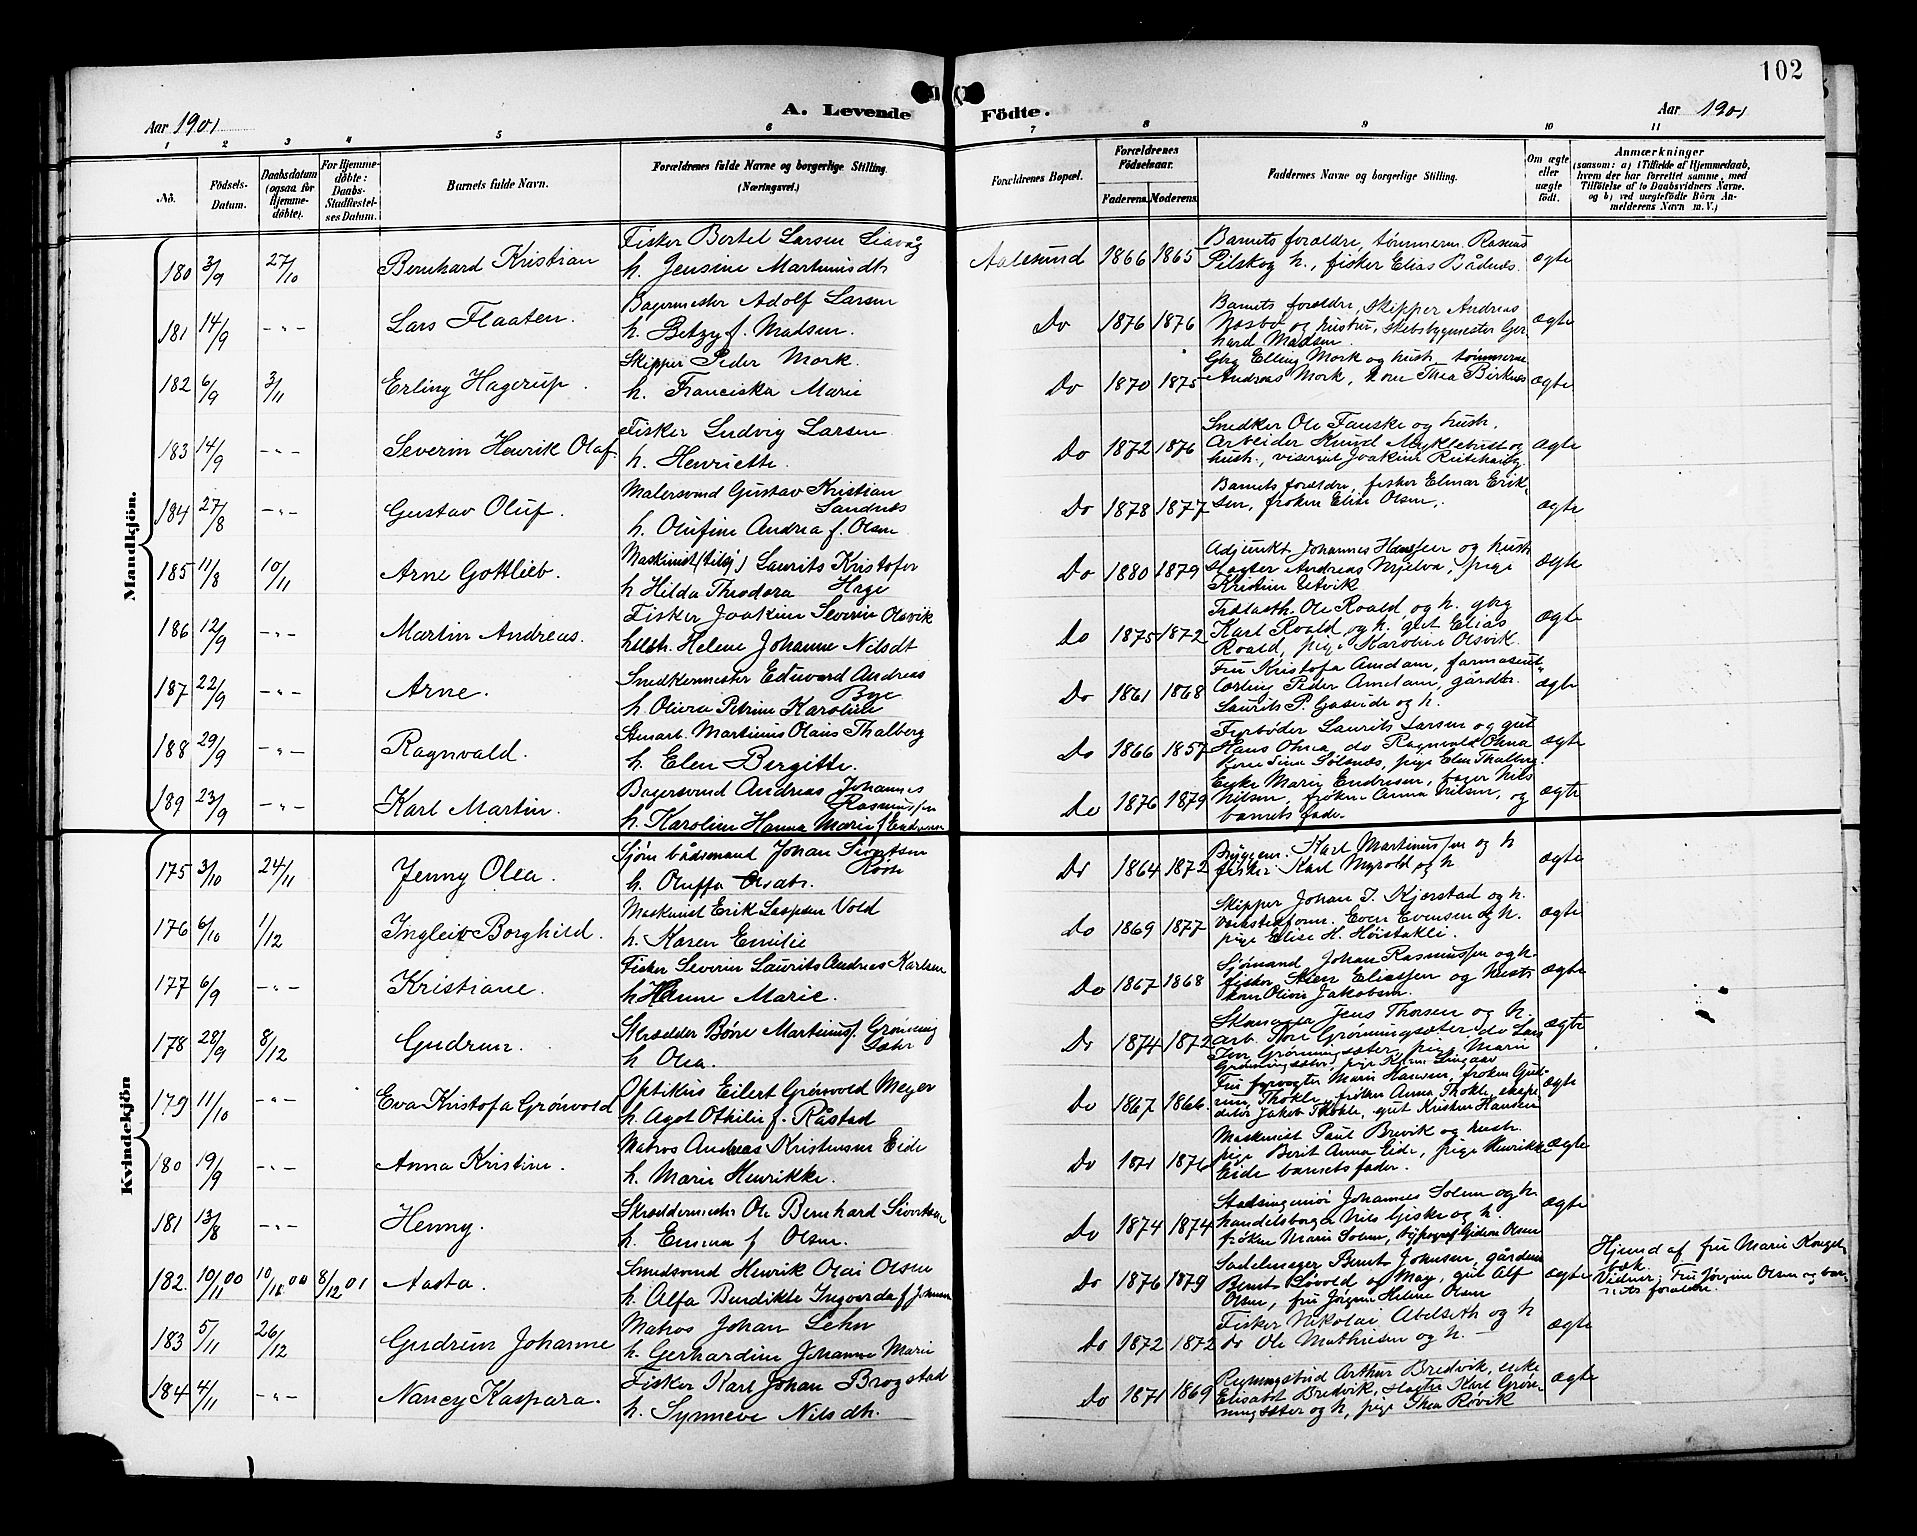 102
A. Levende Födte.
Aar 1901
Aar 1901
1 2 3 4 5 6 7 8 9 10 11
No.
Födsels-Datum.
Daabsdatum (ogsaa for Hjemmedöbte).
For Hjemmedöbte: Daabs-Stadfæstelses Datum.
Barnets fulde Navn.
Forældrenes fulde Navne og borgerlige Stilling (Næringsvei.)
Forældrenes Bopæl.
Forældrenes Födselsaar.
Faderens. Moderens.
Faddernes Navne og borgerlige Stilling.
Om ægte eller uægte födt.
Anmærkninger
(saasom: a) i Tilfælde af Hjemmedaab, hvem der har forrettet samme, med Tilföielse af to Daabsvidners Navne, og b) ved uægtefödte Börn Anmelderens Navn m. V.)
Mandkjön.
180 3/9 27/10 Bernhard Kristian
Fisker Bertel Larsen Liavåg
h. Jensine Martinusdt.
Aalesund 1866 1865
Barnets forældre, tømmerm. Rasmus
Pilskog h., fisker Elias Bådnes.
ægte
181 14/9 -"- Lars Flaaten.
Bagermester Adolf Larsen
h. Betzy f. Madsen.
Do 1876 1876
Barnets forældre, skipper Andreas
Næsbø og hustru, skibsbygmester Ger
hard Madsen
ægte
182 6/9 3/11 Erling Hagerup.
Skipper Peder Mork.
h. Franciska Marie
Do 1870 1875
Gbg Elling Mork og hust. tømmerm.
Andreas Mork, kone Thea Birknes
ægte
183 14/9 -"- Severin Henrik Olaf.
Fisker Ludvig Larsen.
h. Henriette.
Do 1872 1876
Snedker Ole Fauske og hust.
Arbeider Knud Myklebust og
hust., visergut Joakim
ægte
184 27/8 -"- Gustav Oluf.
Malersvend Gustav Kristian
Sandnes
h. Olufine Andrea f. Olsen
Do 1878 1877
Barnets forældre, fisker Elmar Erik-
sen, frøken Elise Olsen.
ægte
185 11/8 10/11 Arne Gottlieb.
Maskinist Laurits Kristofer
h Hilda Theodora Hage
Do 1880 1879
Adjunkt Johannes Hanssen og hust
slagter Andreas Mjelva, pige
Kristine Utvik
ægte
186 12/9 -"- Martin Andreas.
Fisker Joakim Severin Olsvik
h. Helene Johanne Nilsdt
Do 1875 1872
Ole Roald og h. gbg
Karl Roald og h. gut Elias
Roald, pige Karoline Olsvik.
ægte
187 22/9 -"- Arne.
Snedkermester Edvard Andreas
Bye
h. Olivia Petrine Karoline
Do 1861 1868
Fru Kristofa Amdam, farmaseut
lærling Peder Amdam, gårdbr.
Laurits P. Gaseide og h.
ægte
188 29/9 -"- Ragnvald.
Stenarb. Martinus Olaus Thalberg
h. Elen Bergitte.
Do 1866 1857
Fyrbøder Laurits Larsen og gut
Hans Ohna do Ragnvald Ohna
kone Sina Solsnæs, pige Elen Thalberg
ægte
189 23/9 -"- Karl Martin.
Bagersvend Andreas Johannes
Rasmussen
h. Karoline Hanna Marie f Endresen
Do 1876 1879
Enke Marie Endresen, bager Nils
Nilsen, frøken Anna Nilsen, og
barnets fader.
ægte
Kvindekjön
175 3/10 24/11 Jenny Olea.
Sjøm bådsmand Johan Sivertsen
h. Oluffa
Do 1864 1872
Bryggem. Karl Martinussen og h
fisker Karl Myrold og h
ægte
176 6/10 1/12 Ingleiv Borghild.
Maskinist Erik Vold
h. Karen Emilie
Do 1869 1877
Skipper Johan J. Kjerstad og h.
Verkstedform. Even Evensen og h.
pige Elise H. Høistakli.
ægte
177 6/9 -"- Kristiane.
Fisker Severin Laurits Andreas Karlsen
h Hanne Marie.
Do 1867 1868
Sjømand Johan Rasmussen og h.
fisker Sten Eliassen og hust.
kone Olivie Jakobsen.
ægte
178 28/9 8/12 Gudrun.
Skrædder Børre Martinus Grønning
Sæter
h Olea.
Do 1874 1872
Skomager Jens Thorsen og h.
arb. Tore Grønningsæter, do Lars
Iver Grønningsæter, pige Marie
Grønningsæter, pige
ægte
179 11/10 -"- Eva Kristofa Grønvold
Optikus Eilert Grønvold Meyer
h. Agot Othilie f. Råstad
Do 1867 1866
Fru fyrvogter Marie Hansen, frøken Gud-
run Thokle, frøken Anna Thokle, ekspe-
ditør Jakob Thokle, gut Kristen Hansen
ægte
180 19/9 -"- Anna Kristine.
Matros Andreas Kristensen Eide
h. Marie Henrikke.
Do 1871 1876
Maskinist Paul Brevik og hustr.
pige Berit Anna Eide, pige Henrikke
Eide barnets fader.
ægte
181 13/8 -"- Henny.
Skræddermester Ole Bernhard Sivertsen
h. Emma f Olsen.
Do 1874 1874
Stadsingeniør Johannes Solem og h.
handelsborger Nils Giske og h.
frøken Marie Solem, typograf Gideon Olsen
ægte
182. 10/11 00 10/16 00 8/12 01 Aasta.
Smedsvend Henrik Olai Olsen
h. Alfa Bendikte Ingvarda f Johnsen
Do 1876 1879
Sadelmager Bernt Johnsen, gårdm.
Bernt Løvold og May, gut Alf
Olsen, fru Jørgine Helene Olsen
ægte
Hjemd af fru Marie Kongel-
bæk.
Vidner: Fru Jørgine Olsen og bar-
nets forældre.
183 5/11 26/12 Gudrun Johanne
Matros Johan Lehn
h. Gerhardine Johanne Marie
Do 1872 1872
Fisker Nikolai Abelseth og h
do Ole Mathisen og h.
ægte
184 4/11 -"- Nancy Kaspara.
Fisker Karl Johan Brogstad
h. Synneve Nilsdt.
Do 1871 1869
Regningsbud Arthur Bredvik, enke
Elisabet Bredvik, slagter Karl Grøn-
ningsæter og h, pige Thea Røvik
ægte